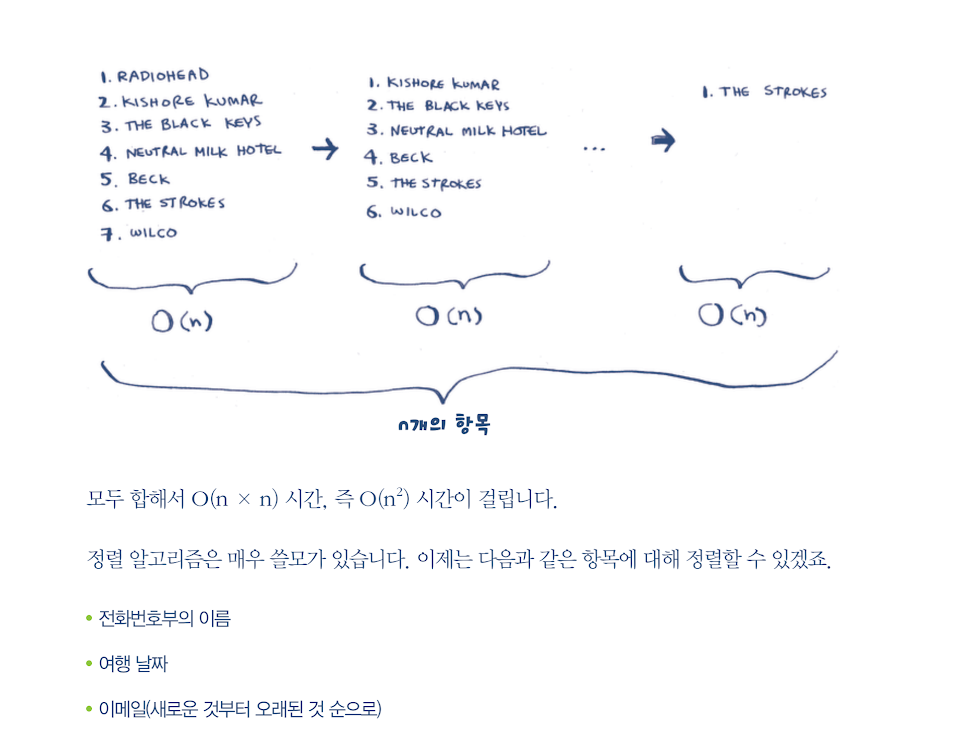 1. RADIOHEAD
2. KISHORE KUMAR
3. THE BLACK KEYS
4. NEUTRAL MILK HOTEL
5. BECK
6. THE STROKES
7. WILCO
1. KISHORE KUMAR
2. THE BLACK KEYS
3. NEUTRAL MILK HOTEL
4. BECK
5. THE STROKES
6. WILCO
...
1. THE STROKES
O(n)
O(n)
O(n)
n개의 항목
모두 합해서 O(n × n) 시간, 즉 O(n²) 시간이 걸립니다.
정렬 알고리즘은 매우 쓸모가 있습니다. 이제는 다음과 같은 항목에 대해 정렬할 수 있겠죠.
• 전화번호부의 이름
• 여행 날짜
• 이메일(새로운 것부터 오래된 것 순으로)